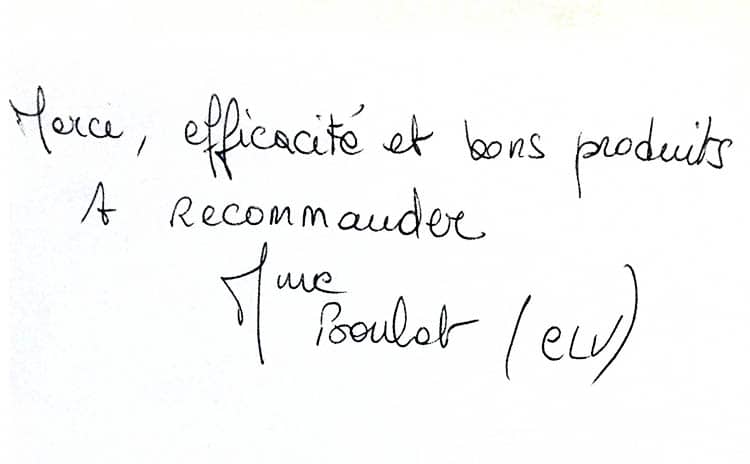 Merci, efficacité et bons produits
A Recommander
Mme
Boulat (CLV)